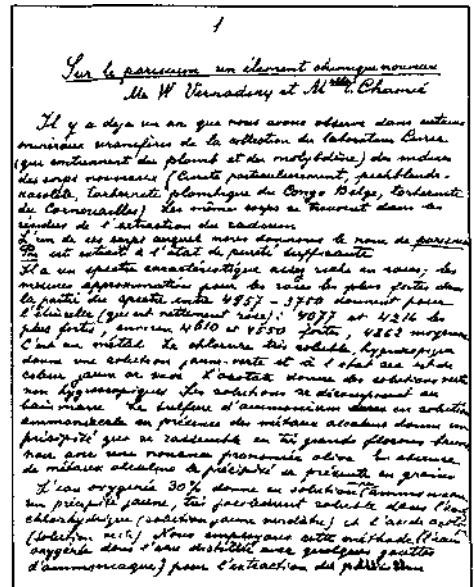 1
Sur le parisium un élément chimique nouveau
M W Vernadsky et Mlle C. Chamié
Il y a deja un an que nous avons observé dans certains
minéraux uranifères de la collection du laboratoire Curie
(qui contiennent du plomb et du molybdène) des indices
des corps nouveaux (Curite particulièrement, pechblende-
kasolite, torbernite plombique du Congo Belge, torbernite
de Cornouailles) Les même corps se trouvent dans les
résidus de l'extraction du radium
L'un de ces corps auquel nous donnons le nom de parisium
est extrait à l'état de pureté suffisante
Il a un spectre caractéristique assez riche en raies; les
mesures approximatives pour les raies les plus fortes dans
la partie du spectre entre 4957 - 3750 donnent pour
l'étincelle (qui est nettement rose): 4077 et 4216 les
plus fortes, environ 4610 et 4550 fortes, 4262 moyenne
C'est un métal. Le chlorure très soluble, hygroscopique
donne une solution jaune-verte et à l'état sec est de
couleur jaune or verte L'acétate donne des solutions vertes
non hygroscopiques Les solutions se décomposent au
bain marie. Le sulfure d'ammonium en solution
ammoniacale en présence des métaux alcalins donne un
précipité qui se rassemble en très grands flocons bruns
noir avec une nuance prononcée olive En absence
de métaux alcalins le précipité se présente en grains
L'eau oxygenée 30% donne en solution ammoniacale
un précipité jaune, très facilement soluble dans l'acide
chlorhydrique (solution jaune verdâtre) et l'acide acétique
(solution verte) Nous employons cette méthode (l'eau
oxygenée dans l'eau distillée avec quelques gouttes
d'ammoniaque) pour l'extraction du parisium